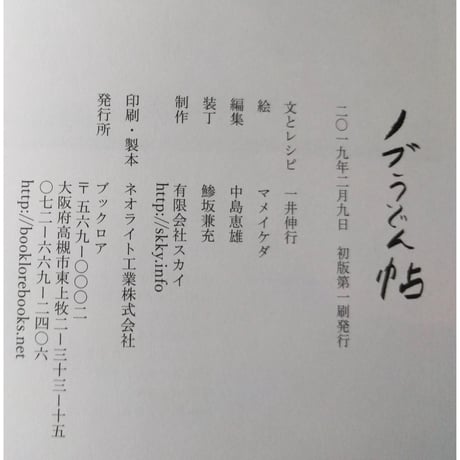 ノブうどん帖
二〇一九年二月九日　初版第一刷発行
文とレシピ　一井伸行
絵　マメイケダ
編集　中島恵雄
装丁　鯵坂兼充
制作　有限会社スカイ
http://skky.info
印刷・製本　ネオライト工業株式会社
発行所　ブックロア
〒五六九―〇〇〇二
大阪府高槻市東上牧二―三十三―十五
〇七二―六六九―二四〇六
http://booklorebooks.net